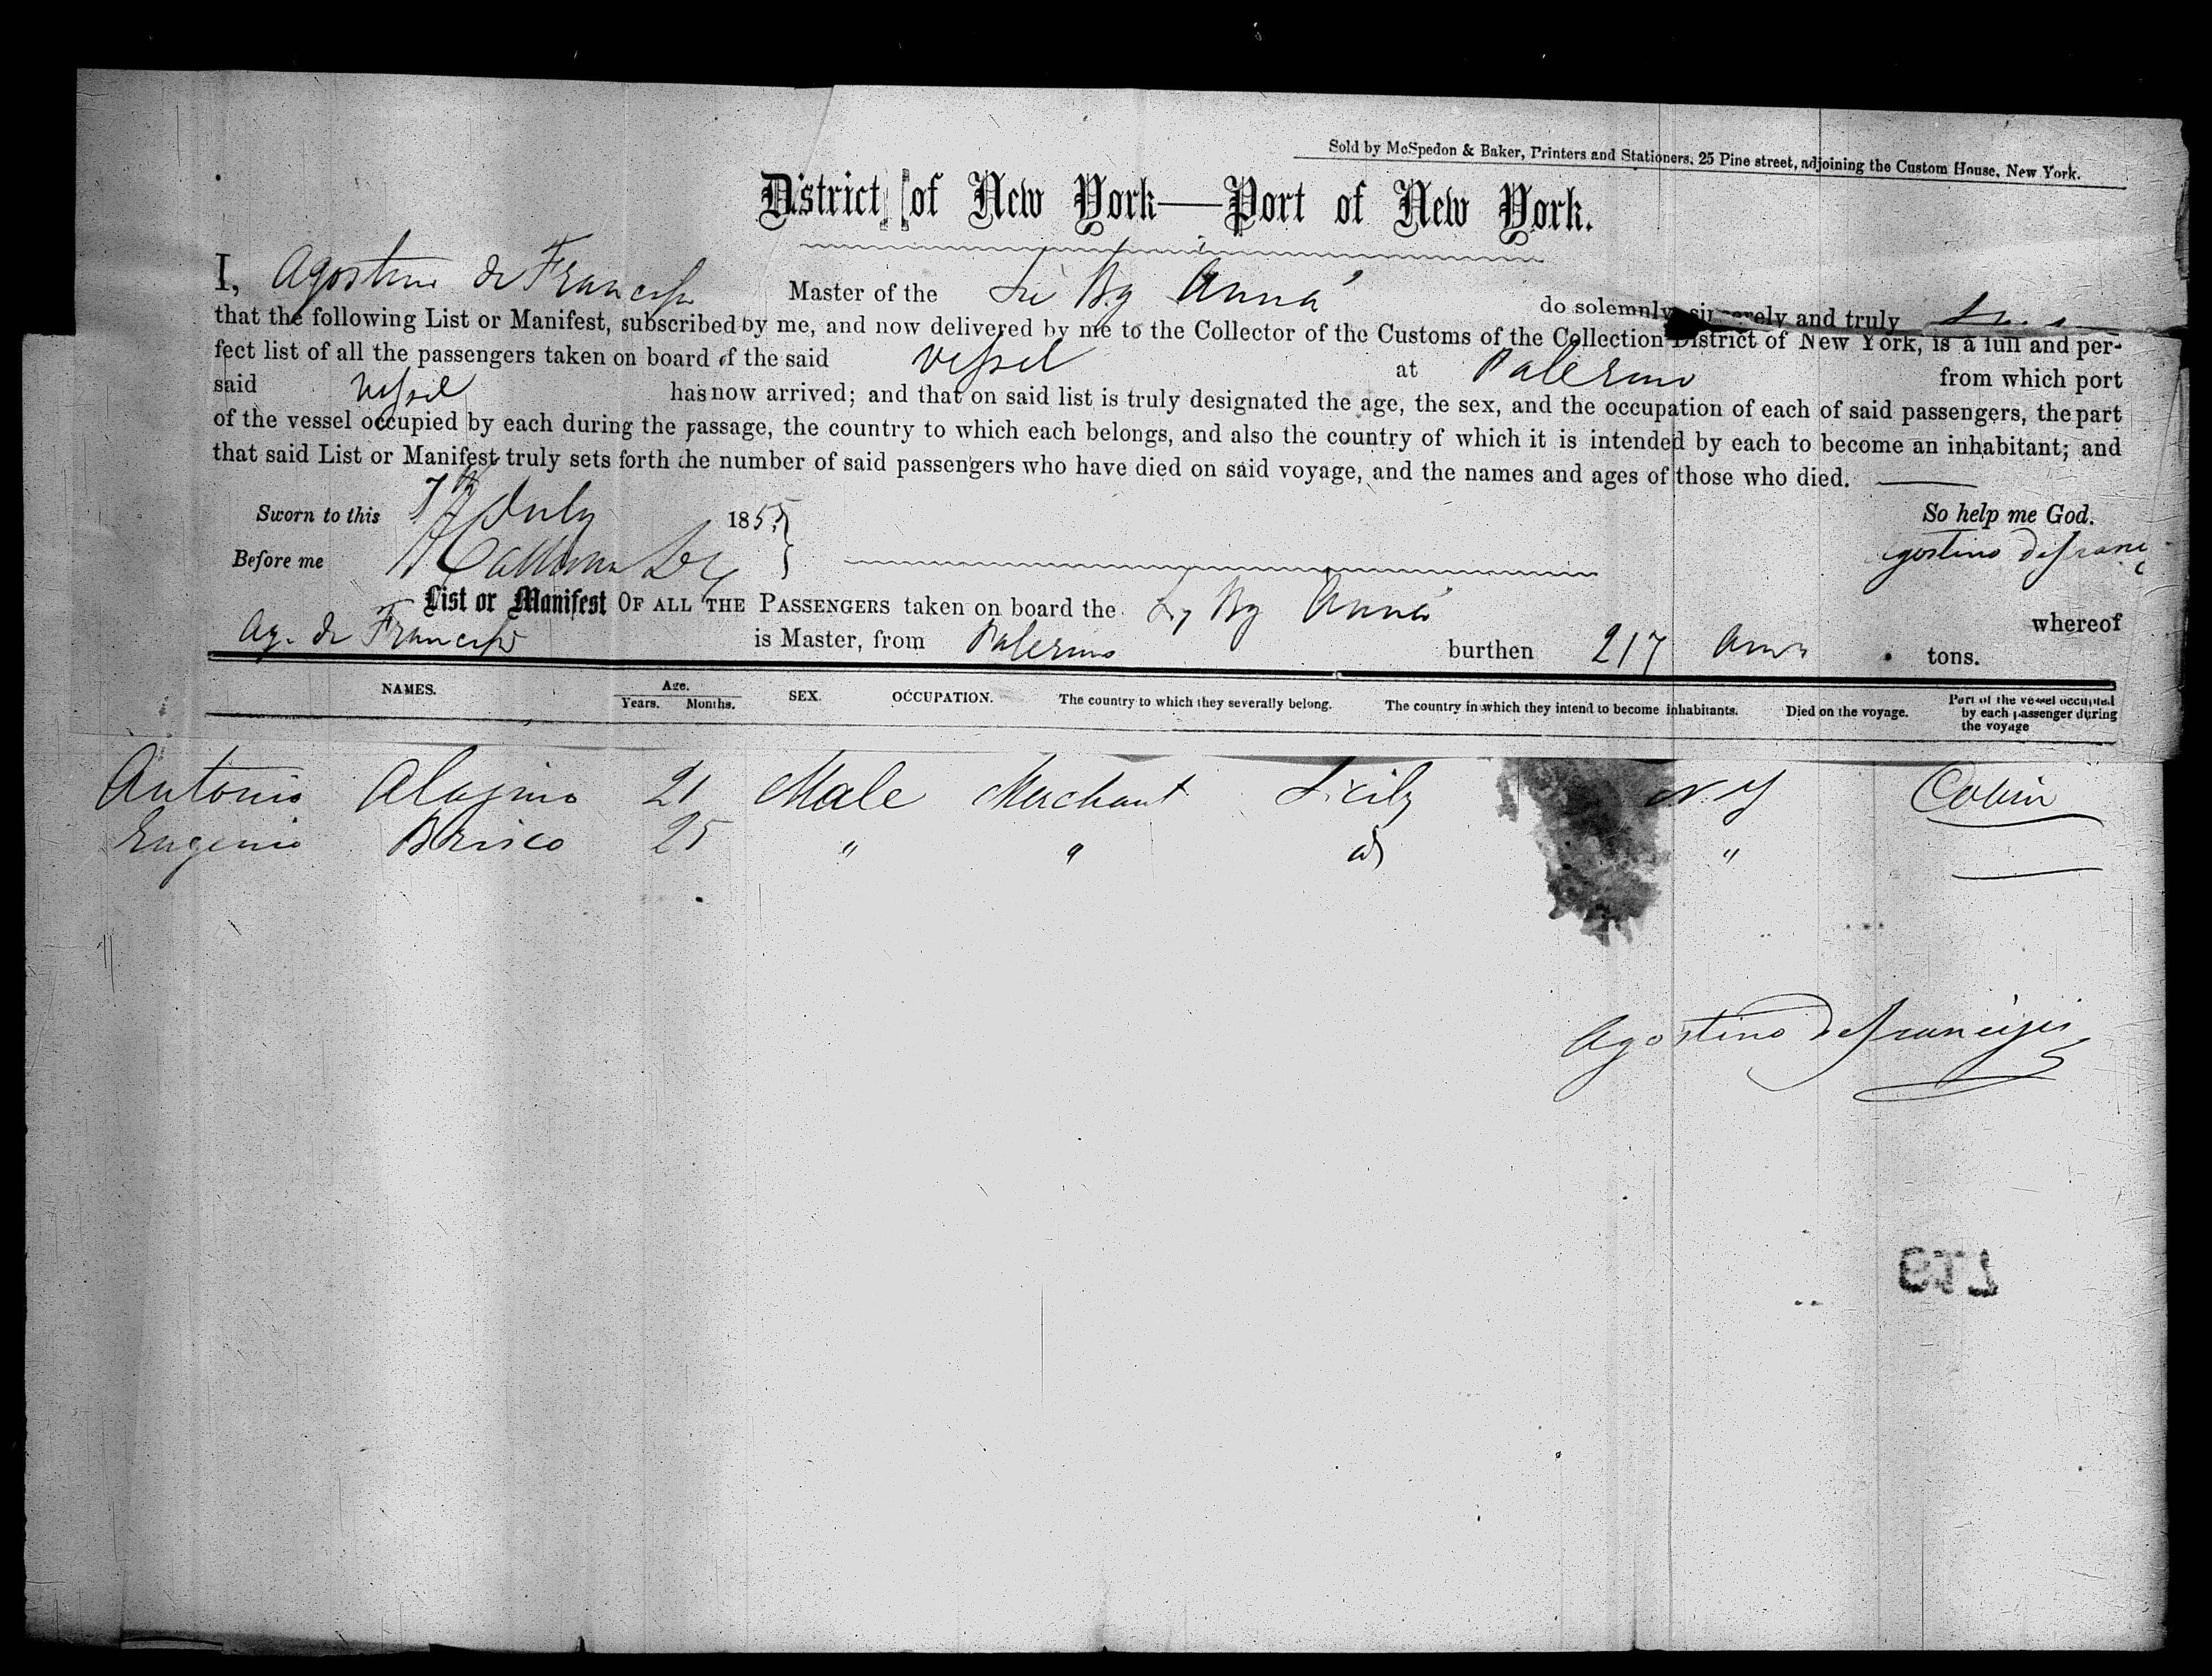 Sold by McSpedon & Baker, Printers and Stationers, 25 Pine street, adjoining the Custom House, New York.
District of New York—Port of New York.
I, Agostino de Francisci Master of the Bg Anna do solemnly, sincerely and truly
that the following List or Manifest, subscribed by me, and now delivered by me to the Collector of the Customs of the Collection District of New York, is a full and per-
fect list of all the passengers taken on board of the said vessel at Palermo from which port
said vessel has now arrived; and that on said list is truly designated the age, the sex, and the occupation of each of said passengers, the part
of the vessel occupied by each during the passage, the country to which each belongs, and also the country of which it is intended by each to become an inhabitant; and
that said List or Manifest truly sets forth the number of said passengers who have died on said voyage, and the names and ages of those who died.
Sworn to this 7th July 1855 So help me God.
Before me
List or Manifest OF ALL THE PASSENGERS taken on board the Bg Anna whereof
Ag. de Francisci is Master, from Palermo burthen 217 tons.
NAMES. Age. Years. Months. SEX. OCCUPATION. The country to which they severally belong. The country in which they intend to become inhabitants. Died on the voyage. Part of the vessel occupied by each passenger during the voyage
Antonio 21 Male Merchant Sicily N Y Cabin
Eugenio Brisco 25 " " id "
Agostino defrancisci